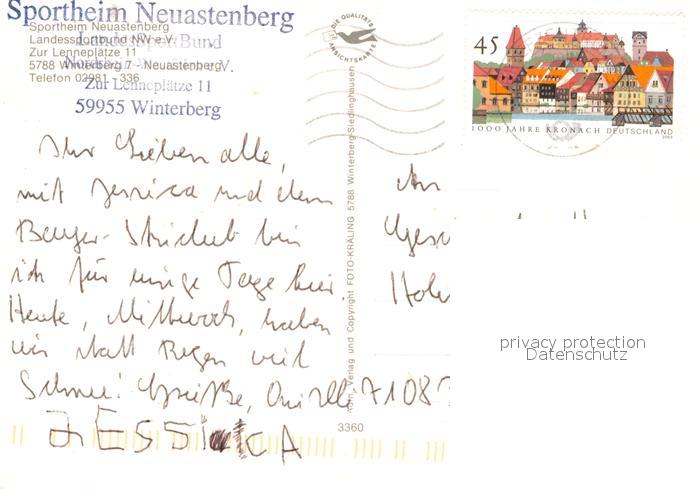 Sportheim Neuastenberg
Sportheim Neuastenberg
Landessportbund NW e.V.
Zur Lenneplätze 11
5788 Winterberg 7 - Neuastenberg
Telefon 02981 - 336
LandesSportBund
Nordrhein-Westfalen e.V.
Zur Lenneplätze 11
59955 Winterberg
DIE QUALITÄTS
ANSICHTSKARTE
45
1000 JAHRE KRONACH DEUTSCHLAND
2003
Ihr Lieben alle,
mit Jessica und dem
bin
ich für einige Tage hier.
Heute, Mittwoch, haben
wir statt Regen viel
Schnee! Grüße,
JESSICA
An
Gesc
7108
Verlag und Copyright FOTO-KRÄLING 5788 Winterberg/Siedlinghausen
3360
privacy protection
Datenschutz